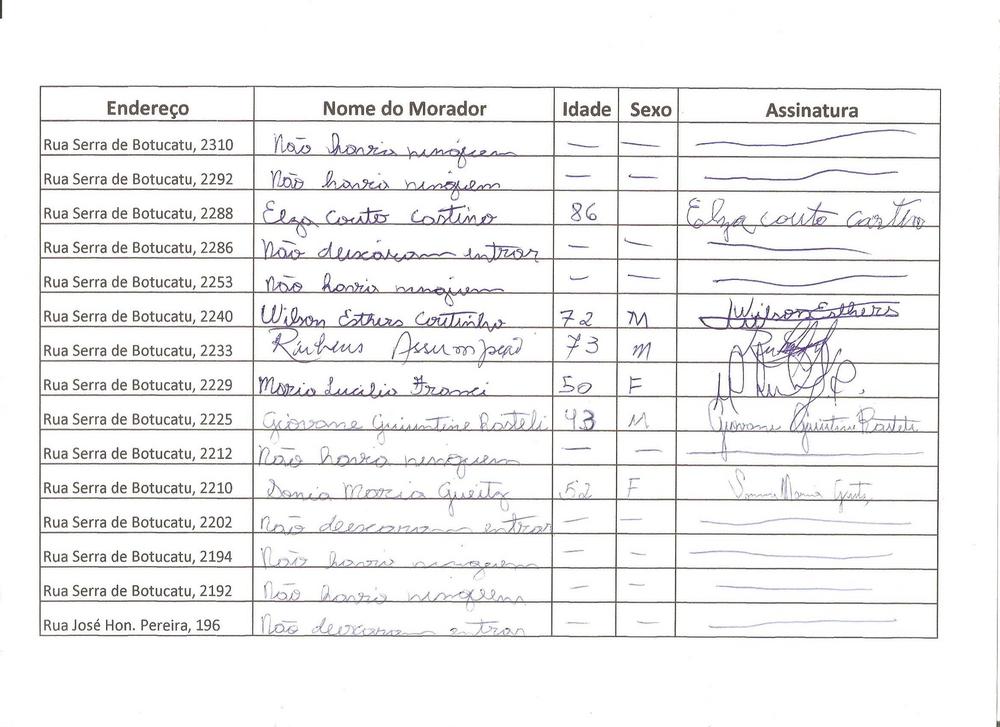 Endereço Nome do Morador Idade Sexo Assinatura
Rua Serra de Botucatu, 2310 Não havia ninguém — — —
Rua Serra de Botucatu, 2292 Não havia ninguem — — —
Rua Serra de Botucatu, 2288 Elza Couto Castino 86 Elza Couto Castino
Rua Serra de Botucatu, 2286 Não deixaram entrar — — —
Rua Serra de Botucatu, 2253 Não havia ninguem — — —
Rua Serra de Botucatu, 2240 Wilson Esthers Coutinho 72 M Wilson Esthers
Rua Serra de Botucatu, 2233 Rubens Assumpção 73 M
Rua Serra de Botucatu, 2229 Maria Lucilia Franci 50 F
Rua Serra de Botucatu, 2225 Giovane Guiuntine Rasteli 43 M Giovane Rasteli
Rua Serra de Botucatu, 2212 Não havia ninguem — — —
Rua Serra de Botucatu, 2210 Sonia Maria Gueitz 52 F Maria
Rua Serra de Botucatu, 2202 Não deixaram entrar — — —
Rua Serra de Botucatu, 2194 Não havia ninguem — — —
Rua Serra de Botucatu, 2192 Não havia ninguem — — —
Rua José Hon. Pereira, 196 Não deixaram entrar — — —